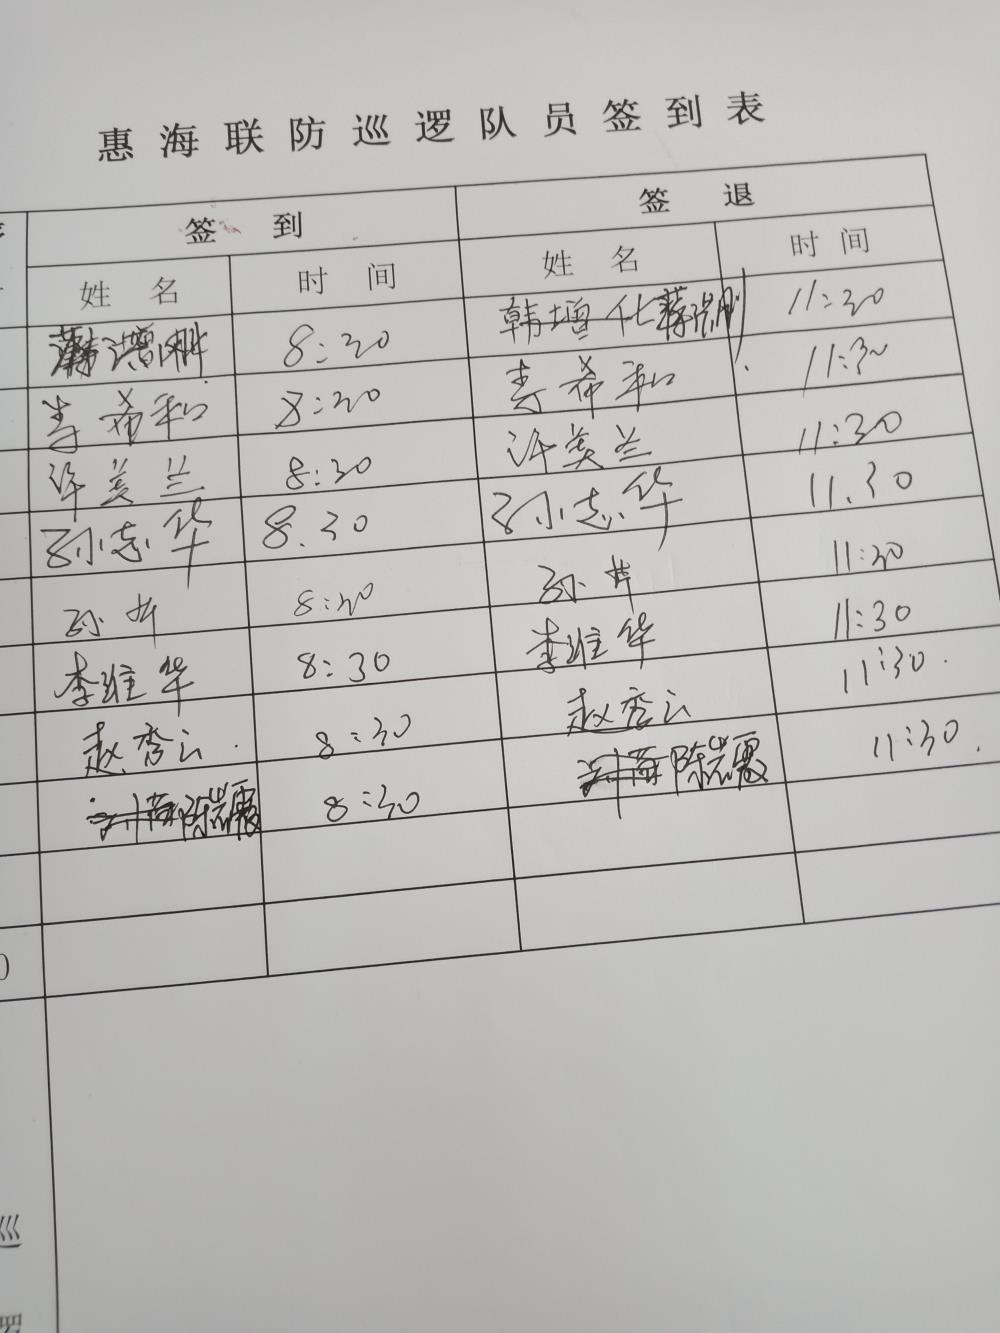 惠海联防巡逻队员签到表
签到 签退
姓名 时间 姓名 时间
8:30 韩增化 11:30
李希和 8:30 李希和 11:30
许美兰 8:30 许美兰 11:30
孙志华 8.30 孙志华 11.30
孙 8:30 孙 11:30
李维华 8:30 李维华 11:30
赵秀云 8:30 赵秀云 11:30
陈岩霞 8:30 陈岩霞 11:30
0
巡
逻